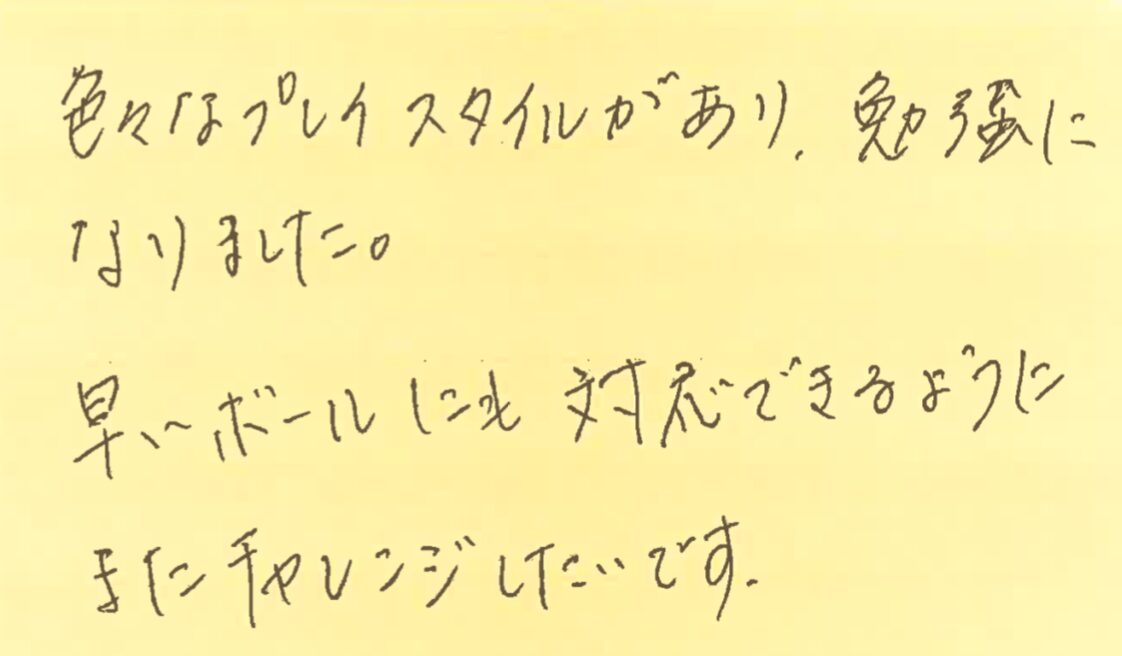 色々なプレイスタイルがあり、勉強に
なりました。
早いボールにも対応できるように
またチャレンジしたいです.